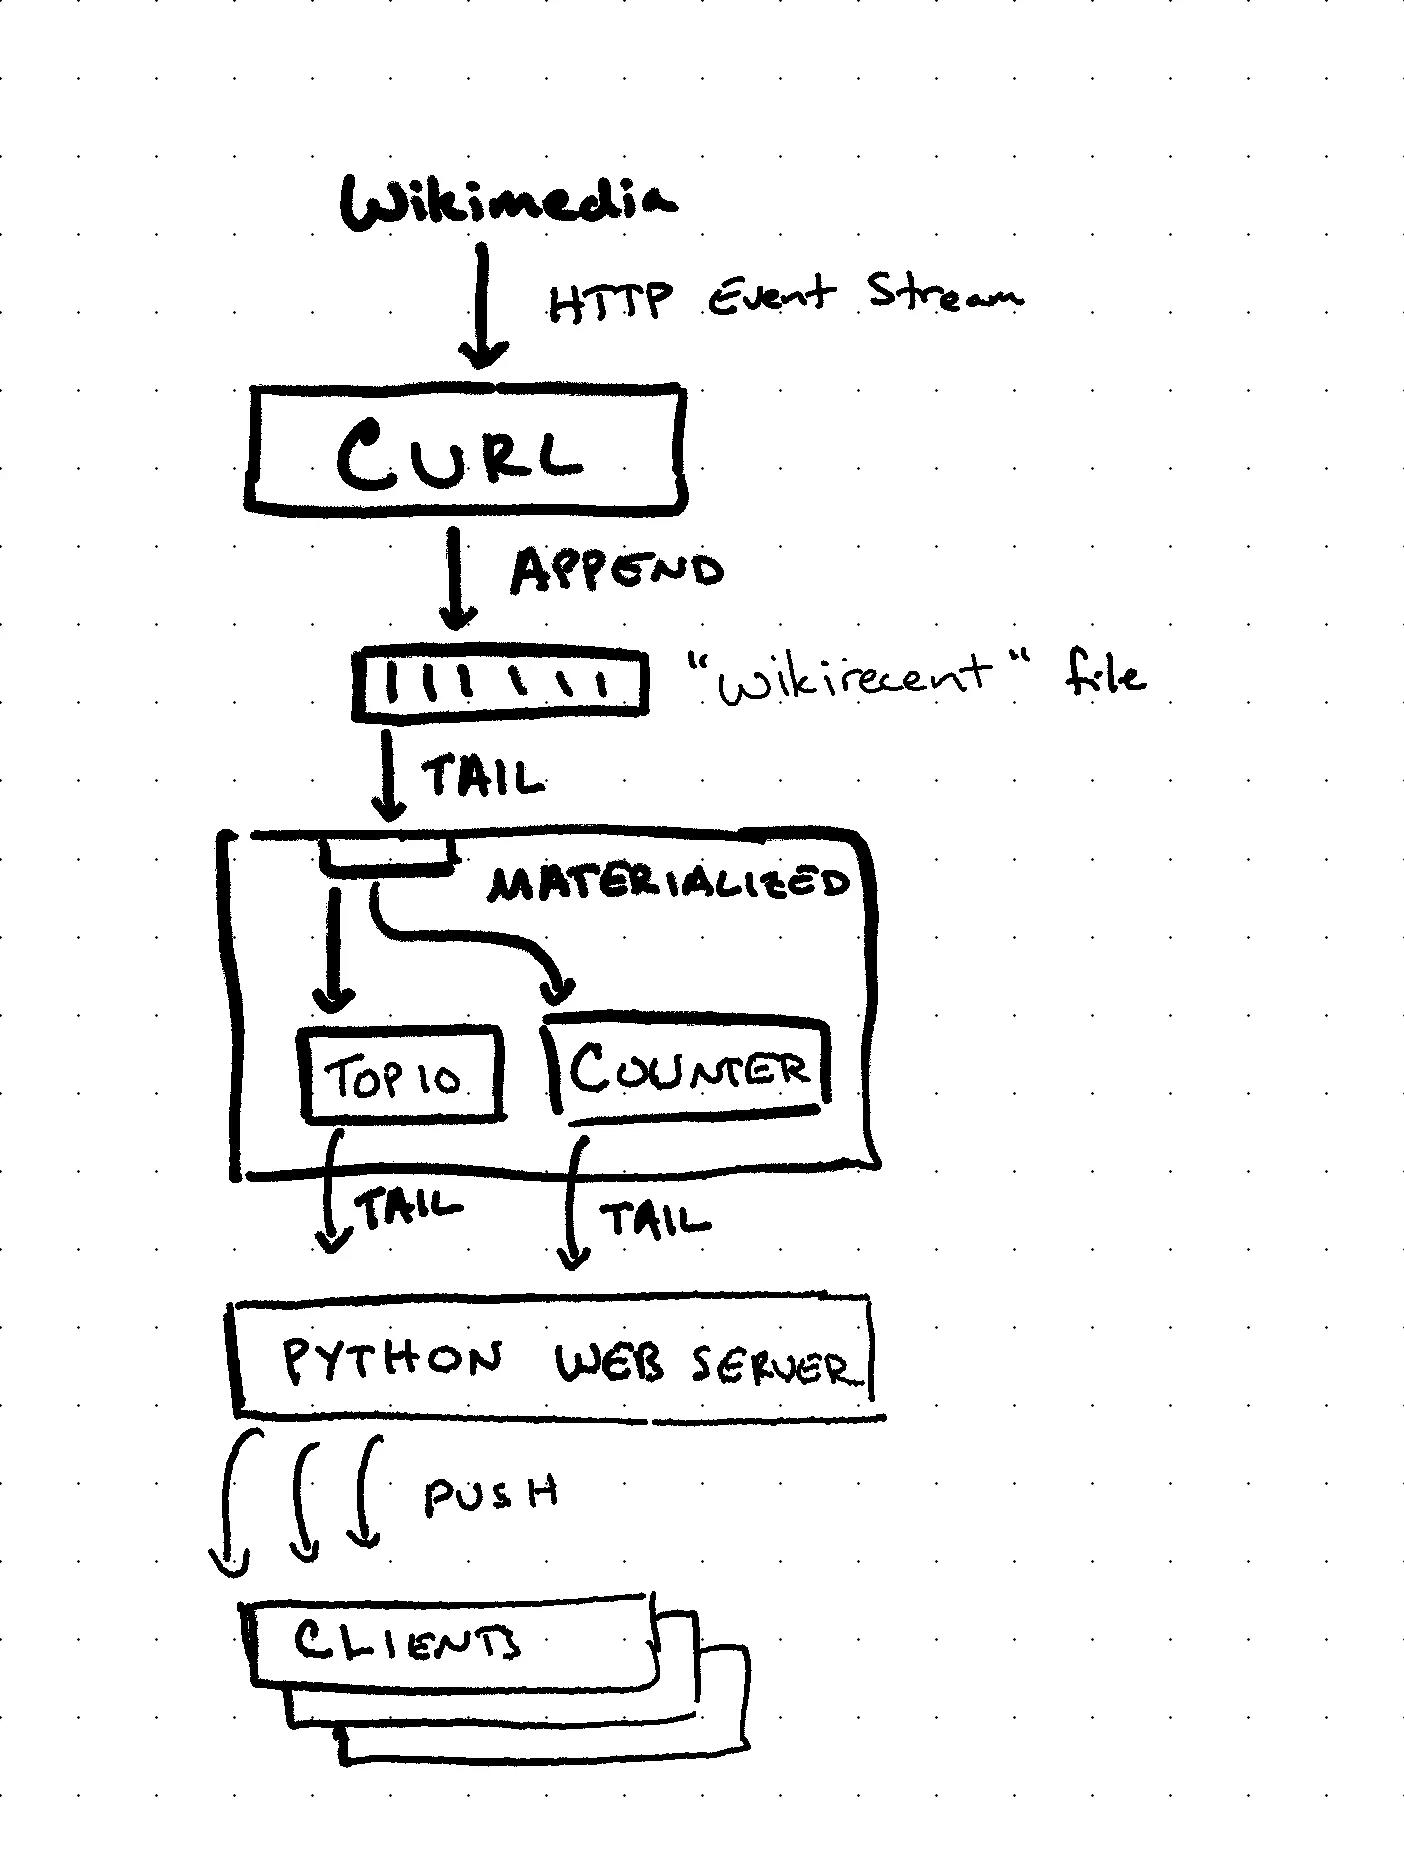 Wikimedia
HTTP Event Stream
CURL
APPEND
"wikirecent" file
TAIL
MATERIALIZED
TOP 10
COUNTER
TAIL
TAIL
PYTHON WEB SERVER
PUSH
CLIENTS